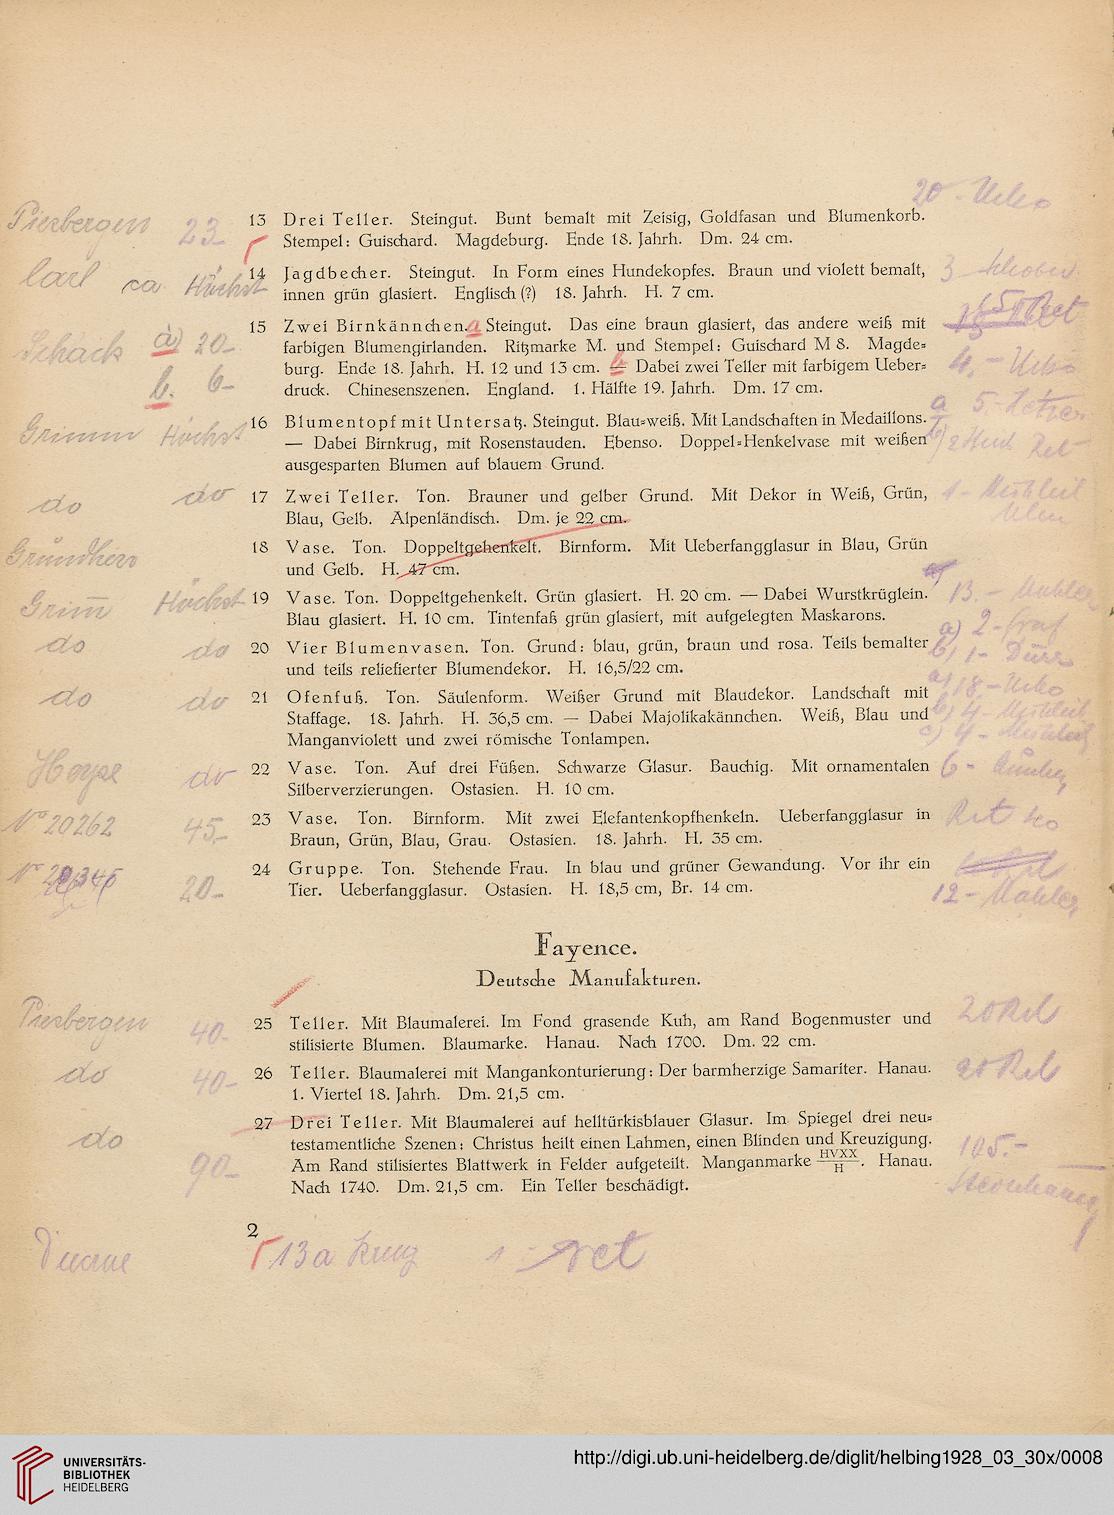 Piesbergen 23.-
20.- 
13 Drei Teller. Steingut. Bunt bemalt mit Zeisig, Goldfasan und Blumenkorb.
Stempel: Guischard. Magdeburg. Ende 18. Jahrh. Dm. 24 cm.
Carl ca Höchst
14 Jagdbecher. Steingut. In Form eines Hundekopfes. Braun und violett bemalt,
innen grün glasiert. Englisch (?) 18. Jahrh. H. 7 cm.
3
Schack a) 20.-
b. 6.-
15 Zwei Birnkännchen. a Steingut. Das eine braun glasiert, das andere weiß mit
farbigen Blumengirlanden. Ritzmarke M. und Stempel: Guischard M 8. Magde=
burg. Ende 18. Jahrh. H. 12 und 13 cm. b — Dabei zwei Teller mit farbigem Ueber=
druck. Chinesenszenen. England. 1. Hälfte 19. Jahrh. Dm. 17 cm.
4.-
Grimm Höchst
16 Blumentopf mit Untersatz. Steingut. Blau=weiß. Mit Landschaften in Medaillons.
— Dabei Birnkrug, mit Rosenstauden. Ebenso. Doppel=Henkelvase mit weißen
ausgesparten Blumen auf blauem Grund.
a 5.-
b) 2
do do
17 Zwei Teller. Ton. Brauner und gelber Grund. Mit Dekor in Weiß, Grün,
Blau, Gelb. Alpenländisch. Dm. je 22 cm.
1.-
18 Vase. Ton. Doppeltgehenkelt. Birnform. Mit Ueberfangglasur in Blau, Grün
und Gelb. H. 47 cm.
Grimm Höchst
19 Vase. Ton. Doppeltgehenkelt. Grün glasiert. H. 20 cm. — Dabei Wurstkrüglein.
Blau glasiert. H. 10 cm. Tintenfaß grün glasiert, mit aufgelegten Maskarons.
13.- Mahler
do do
20 Vier Blumenvasen. Ton. Grund: blau, grün, braun und rosa. Teils bemalter
und teils reliefierter Blumendekor. H. 16,5/22 cm.
a) 2.- Graf
b) 1.-
do do
21 Ofenfuß. Ton. Säulenform. Weißer Grund mit Blaudekor. Landschaft mit
Staffage. 18. Jahrh. H. 36,5 cm. — Dabei Majolikakännchen. Weiß, Blau und
Manganviolett und zwei römische Tonlampen.
a) 18.-
b) 4.-
c) 4.-
do
22 Vase. Ton. Auf drei Füßen. Schwarze Glasur. Bauchig. Mit ornamentalen
Silberverzierungen. Ostasien. H. 10 cm.
6.-
No 20262 45.-
23 Vase. Ton. Birnform. Mit zwei Elefantenkopfhenkeln. Ueberfangglasur in
Braun, Grün, Blau, Grau. Ostasien. 18. Jahrh. H. 35 cm.
Ret
20.-
24 Gruppe. Ton. Stehende Frau. In blau und grüner Gewandung. Vor ihr ein
Tier. Ueberfangglasur. Ostasien. H. 18,5 cm, Br. 14 cm.
12.- Mahler
Fayence.
Deutsche Manufakturen.
Piesbergen 40.-
25 Teller. Mit Blaumalerei. Im Fond grasende Kuh, am Rand Bogenmuster und
stilisierte Blumen. Blaumarke. Hanau. Nach 1700. Dm. 22 cm.
20
do 40.-
26 Teller. Blaumalerei mit Mangankonturierung: Der barmherzige Samariter. Hanau.
1. Viertel 18. Jahrh. Dm. 21,5 cm.
20
do 90.-
27 Drei Teller. Mit Blaumalerei auf helltürkisblauer Glasur. Im Spiegel drei neu=
testamentliche Szenen: Christus heilt einen Lahmen, einen Blinden und Kreuzigung.
Am Rand stilisiertes Blattwerk in Felder aufgeteilt. Manganmarke HVXX/H. Hanau.
Nach 1740. Dm. 21,5 cm. Ein Teller beschädigt.
105.-
2
13a Krug 1.- ret
UNIVERSITÄTS-
BIBLIOTHEK
HEIDELBERG
http://digi.ub.uni-heidelberg.de/diglit/helbing1928_03_30x/0008